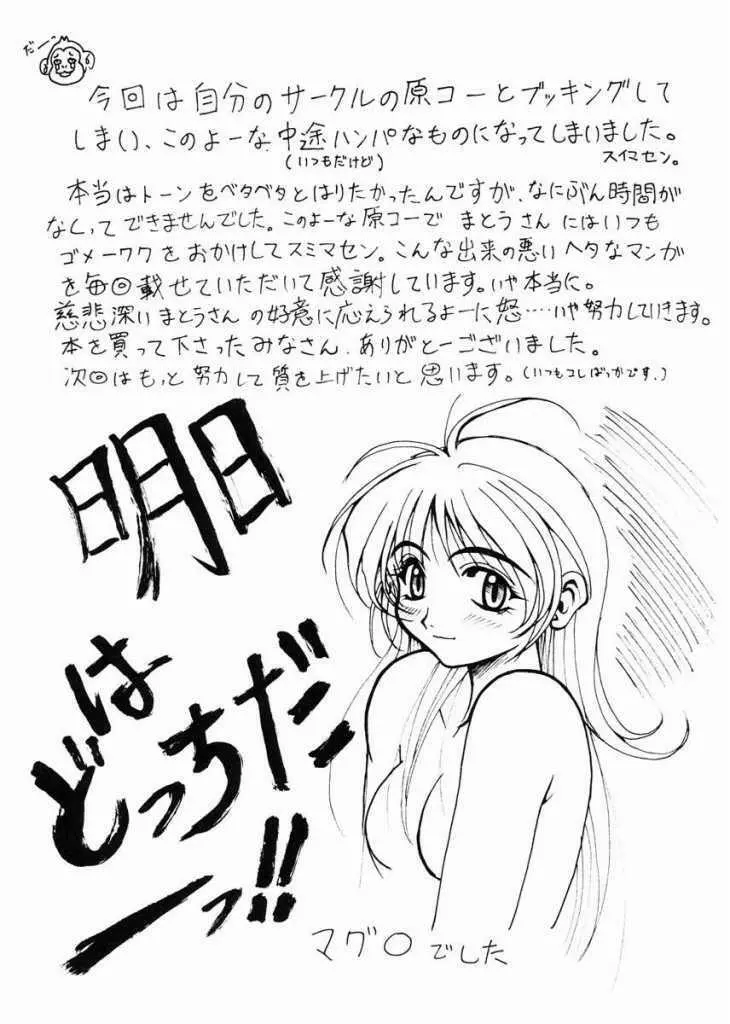 だー
今回は自分のサークルの原コーとブッキングして
しまい、このよーな中途ハンパなものになってしまいました。
(いつもだけど)
スイマセン。
本当はトーンをベタベタとはりたかったんですが、なにぶん時間が
なくってできませんでした。このよーな原コーで まとうさん にはいつも
ゴメーワクをおかけしてスミマセン。こんな出来の悪いヘタなマンガ
を毎回載せていただいて感謝しています。いや本当に。
慈悲深いまとうさんの好意に応えられるよーに怒……いや努力していきます。
本を買って下さったみなさん、ありがとーございました。
次回はもっと努力して質を上げたいと思います。(いつもコレばっかです。)
明日
は
どっちだ
ーっ!!
マグロでした